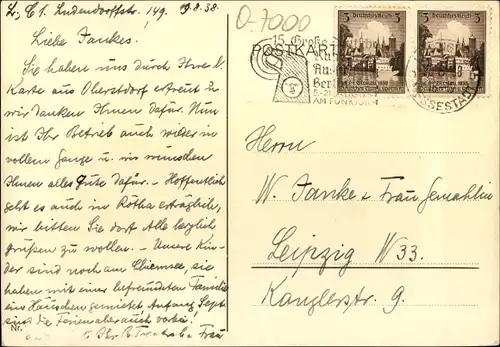 L., C 1. Ludendorffstr. 149. 19.8.38
Liebe Jankes.
Sie haben uns durch Ihre l.
Karte aus Oberstdorf erfreut u
wir danken Ihnen dafür. Nun
ist Ihr Betrieb auch wieder in
vollem Gange u. wir wünschen
Ihnen alles Gute dafür. – Hoffentlich
geht es auch in Rötha erträglich,
wir bitten Sie dort Alle herzlich
grüßen zu wollen. – Unsere Kin-
der sind noch am Chiemsee, sie
haben mit einer befreundeten Familie
ein Häuschen gemietet Anfang Sept.
sind die Ferien aber auch vorbei!
Ihr Frau
Nr.
O-7000
15. Große
POSTKARTE
5.-21.
AM FUNKTURM
3 Deutsches Reich 3
3 Deutsches Reich 3
MESSESTADT
Herrn
W. Janke u Frau Gemahlin
Leipzig W33.
Kanzlerstr. 9.